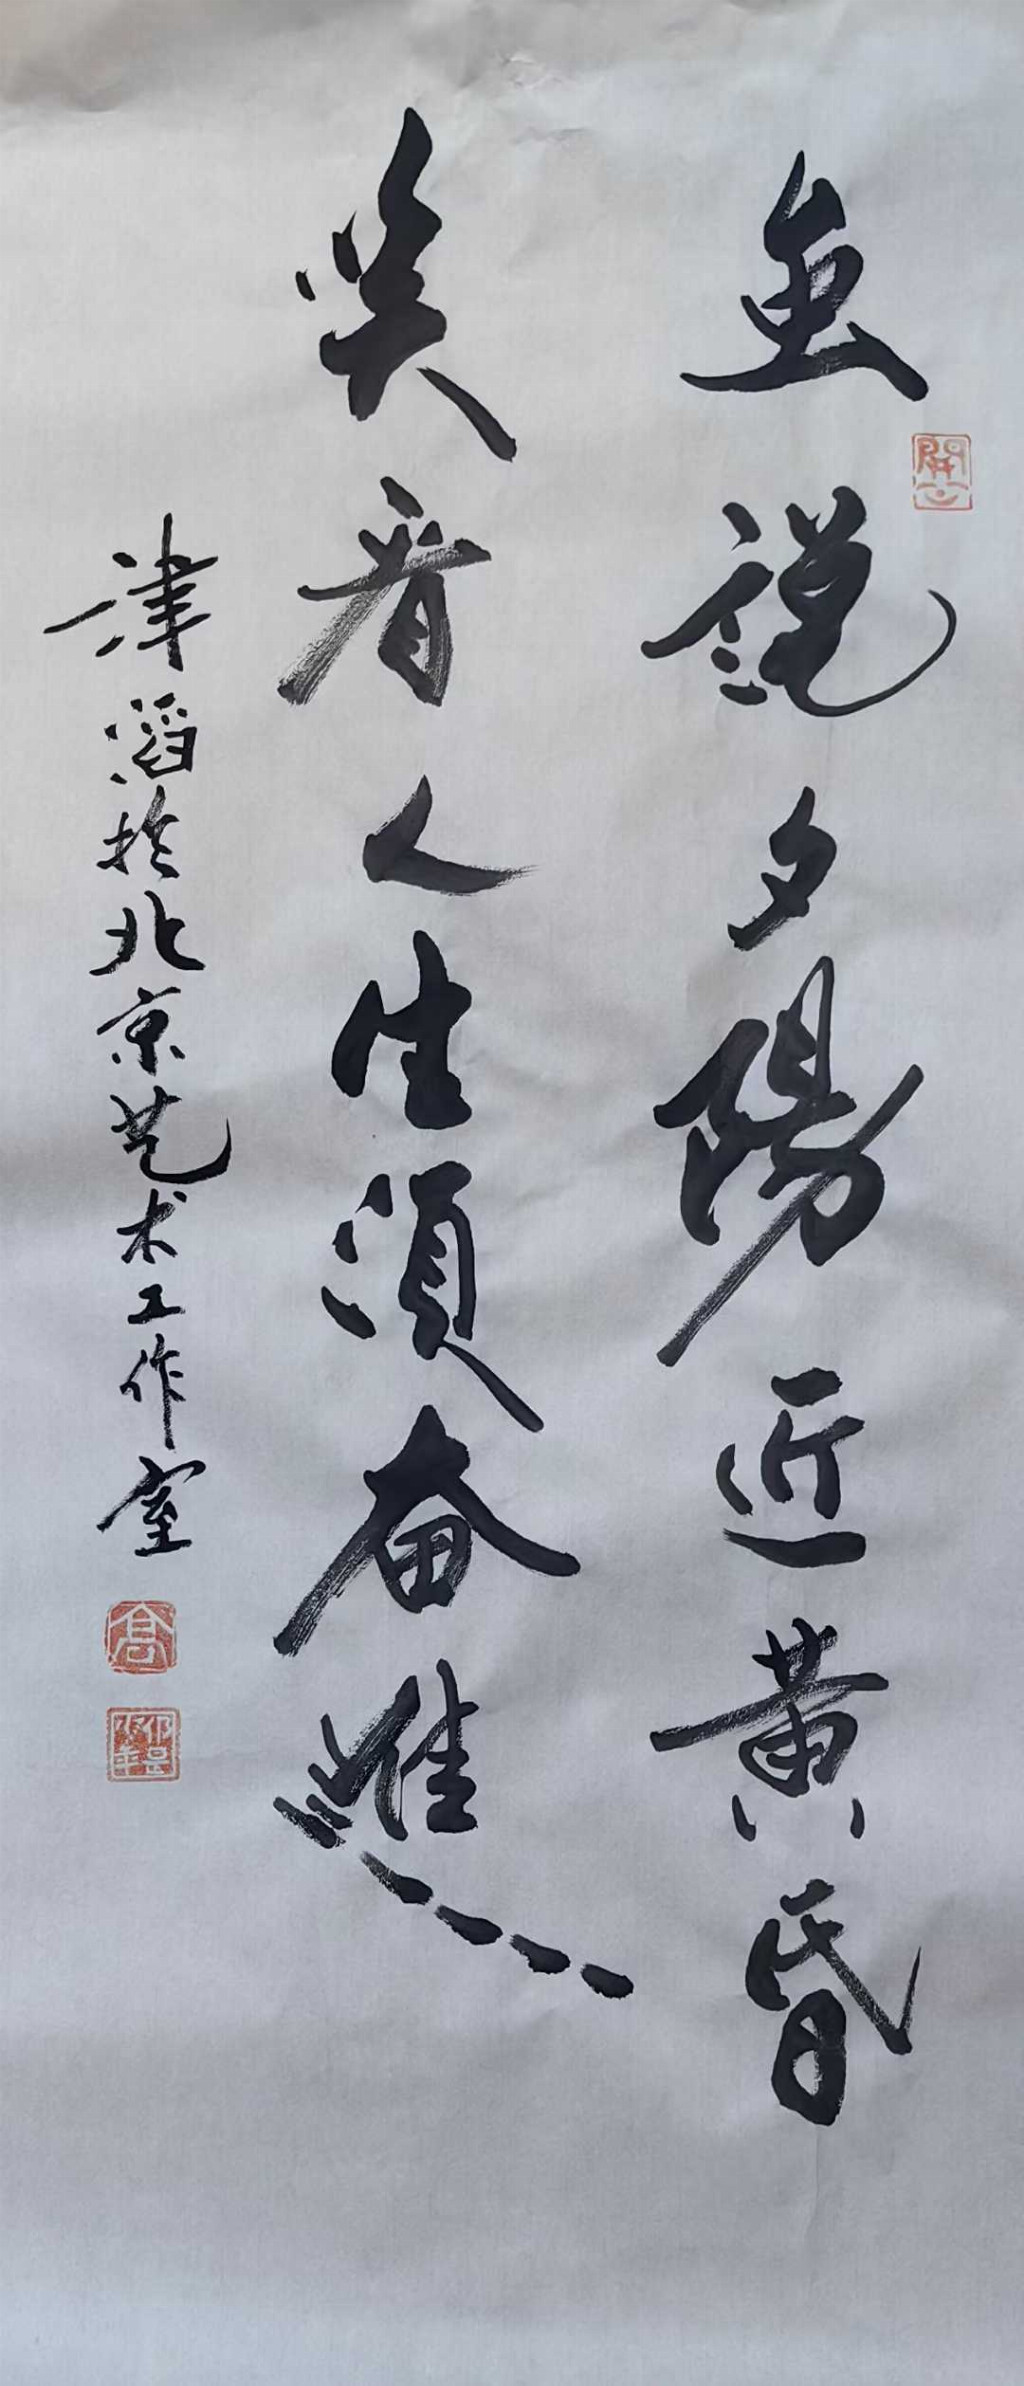 無說夕陽近黃昏
笑看人生須奋進
津滔於北京艺术工作室
高